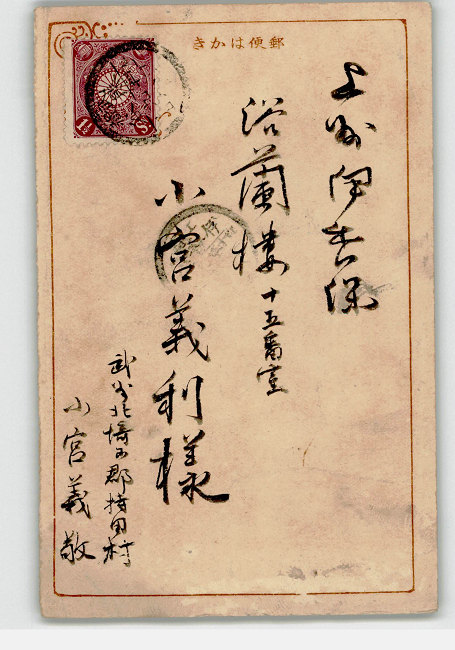 郵便はかき
上州伊香保
浴蘭樓十五番室
小宮義利様
武州北埼玉郡持田村
小宮義敬